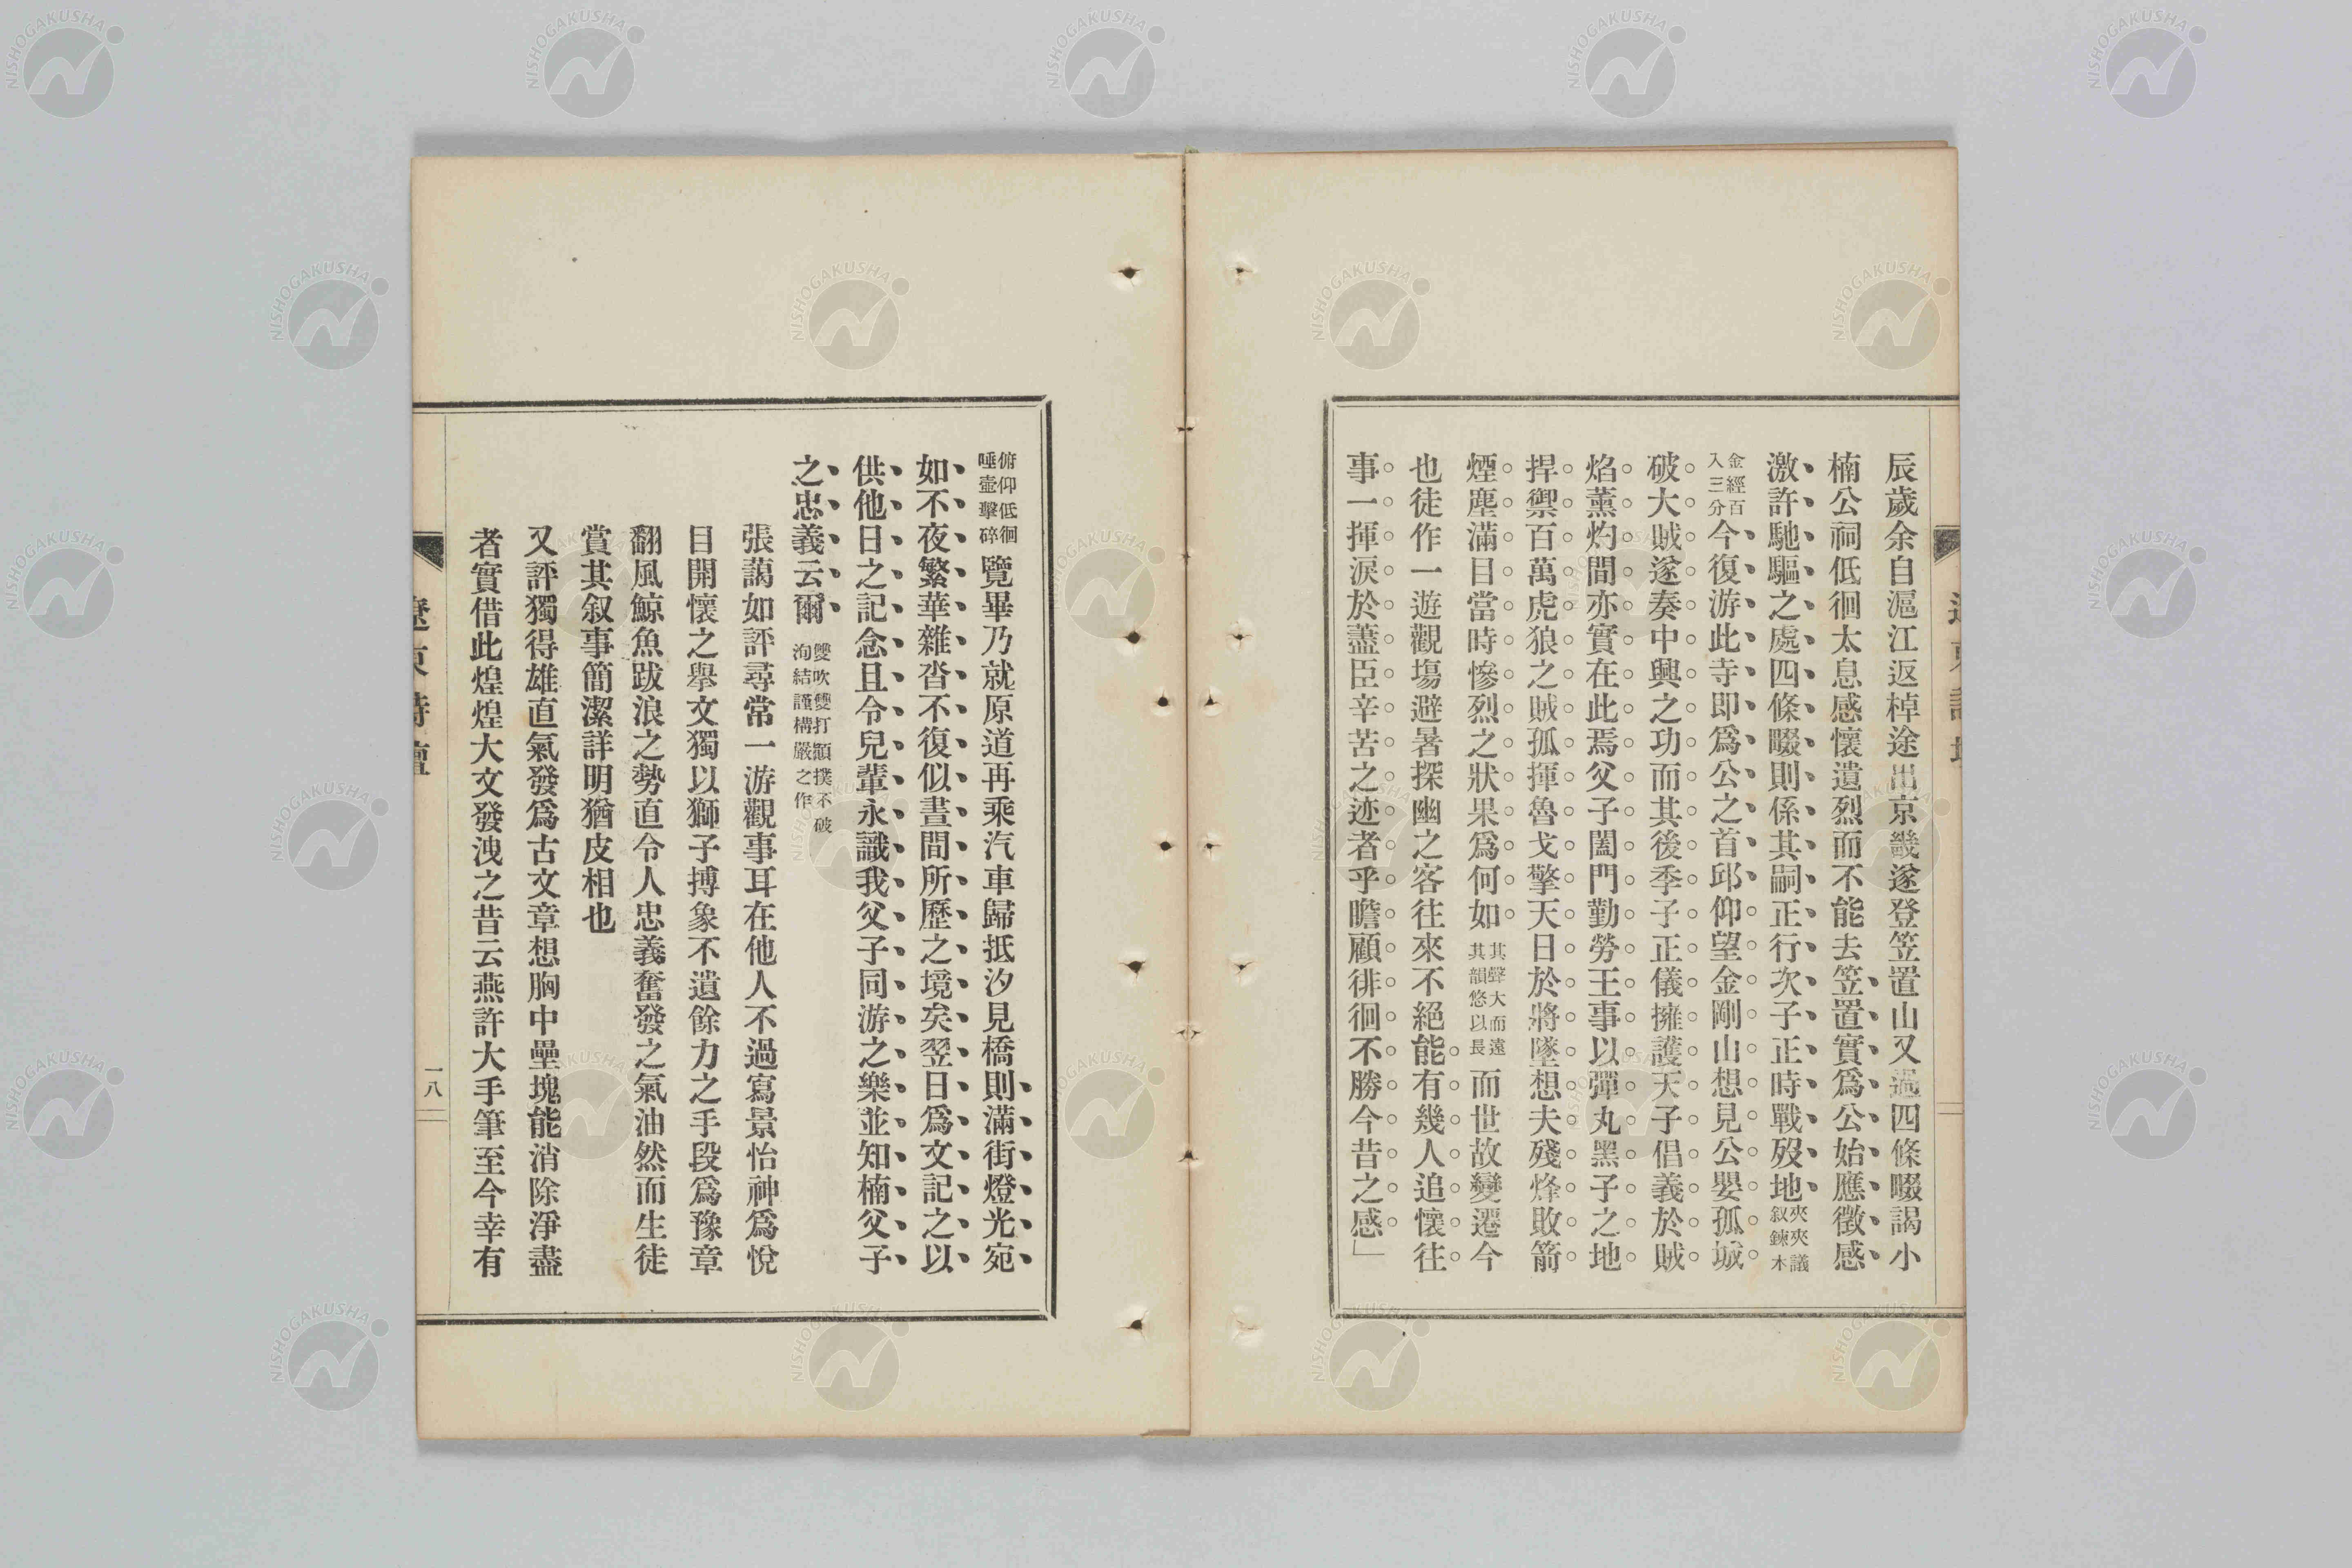 辰歲余自滬江返棹途出京畿遂登笠置山又過四條畷謁小
楠公祠低徊太息感懷遺烈而不能去笠置實爲公始應徵感
激許馳驅之處四條畷則係其嗣正行次子正時戰歿地夾夾議叙鍊木
金經百入三分今復游此寺即爲公之首邱仰望金剛山想見公嬰孤城
破大賊遂奏中興之功而其後季子正儀擁護天子倡義於賊
焰薰灼間亦實在此焉父子闔門勤勞王事以彈丸黑子之地
捍禦百萬虎狼之賊孤揮魯戈擎天日於將墜想夫殘烽敗箭
煙塵滿目當時慘烈之狀果爲何如其聲大而遠其韻悠以長而世故變遷今
也徒作一遊觀塲避暑探幽之客往來不絕能有幾人追懷往
事一揮淚於藎臣辛苦之迹者乎瞻顧徘徊不勝今昔之感」
俯仰低徊唾壺擊碎覽畢乃就原道再乘汽車歸抵汐見橋則滿街燈光宛
如不夜繁華雜沓不復似晝間所歷之境矣翌日爲文記之以
供他日之記念且令兒輩永識我父子同游之樂並知楠父子
之忠義云爾雙吹雙打顚撲不破洵結謹構嚴之作
張藹如評尋常一游觀事耳在他人不過寫景怡神爲悅
目開懷之舉文獨以獅子搏象不遺餘力之手段爲豫章
翻風鯨魚跋浪之勢直令人忠義奮發之氣油然而生徒
賞其叙事簡潔詳明猶皮相也
又評獨得雄直氣發爲古文章想胸中壘塊能消除淨盡
者實借此煌煌大文發洩之昔云燕許大手筆至今幸有
遼東詩壇
一八
NISHOGAKUSHA